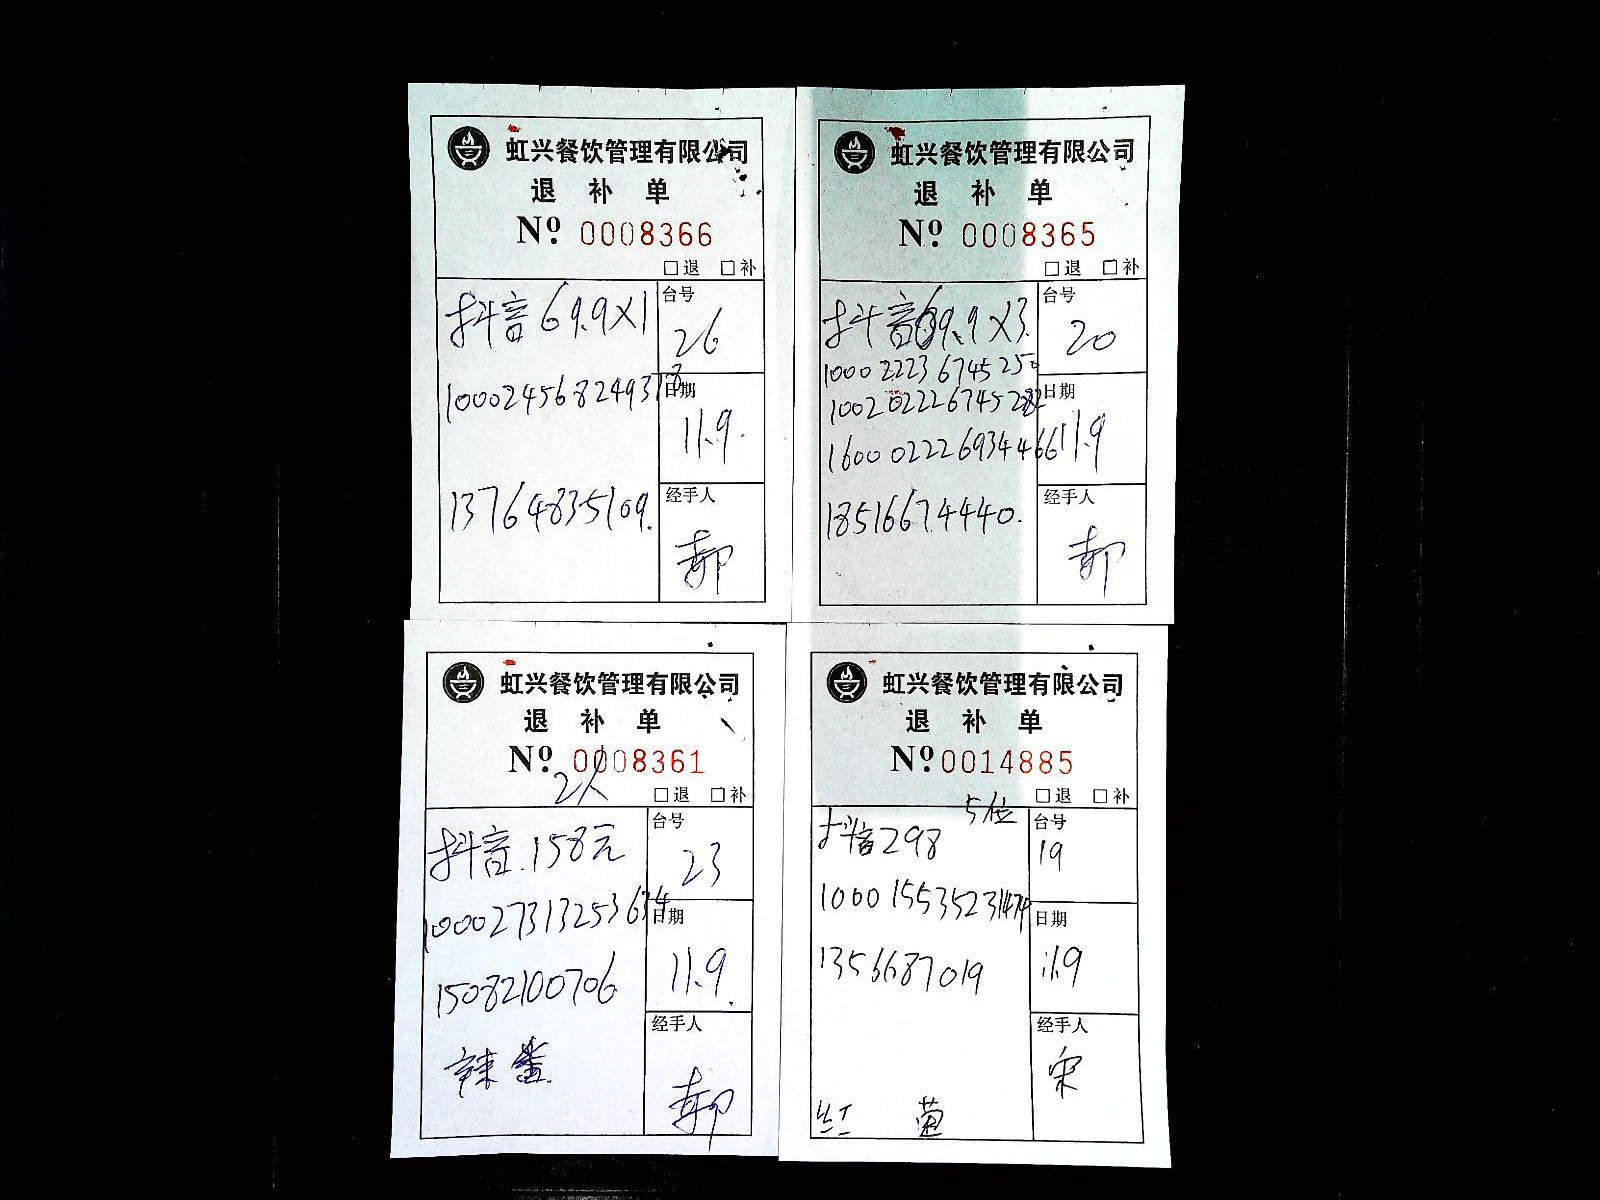 虹兴餐饮管理有限公司
退 补 单
Nº 0008366
□退 □补
抖音69.9X1
台号
26
1000245682493718
日期
11.9.
13764835109.
经手人
郝
虹兴餐饮管理有限公司
退 补 单
Nº 0008365
□退 □补
抖音69.9X3
台号
20
100022236745250
日期
100202226745282
1600022269344661
11.9
18516674440.
经手人
郝
虹兴餐饮管理有限公司
退 补 单
Nº 0008361
2人
□退 □补
抖音.158元
台号
23
100027313253634
日期
15082100706
11.9.
经手人
辣
郝
虹兴餐饮管理有限公司
退 补 单
Nº 0014885
5位
□退 □补
抖音298
台号
19
100015535231474
日期
1356687019
11.9
经手人
宋
红 菌